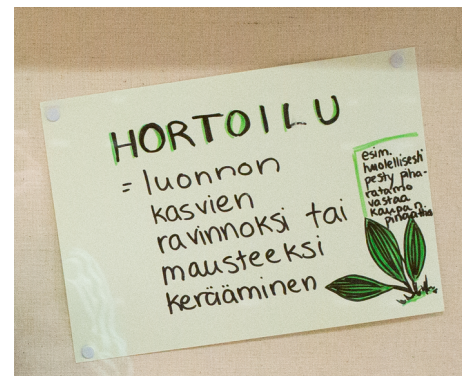 HORTOILU
= luonnon
kasvien
ravinnoksi tai
mausteeksi
kerääminen
esim.
huolellisesti
pesty piha-
ratamo
vastaa
kaupan
pinaattia